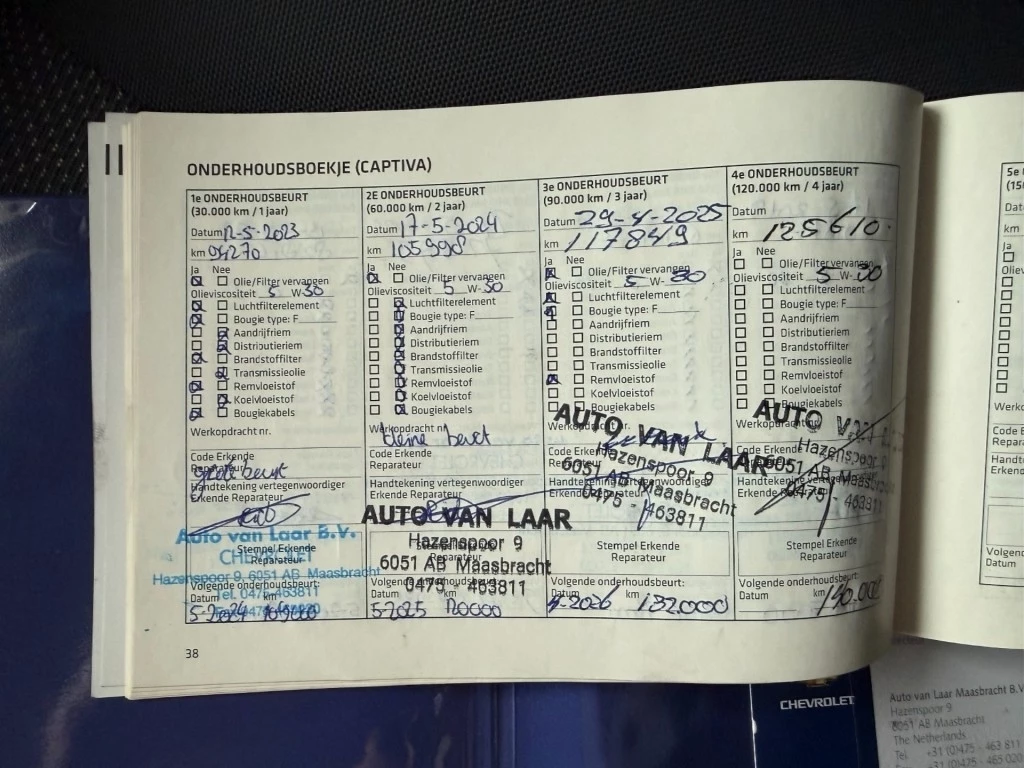 ONDERHOUDSBOEKJE (CAPTIVA)
1e ONDERHOUDSBEURT
(30.000 km / 1 jaar)
Datum 12-5-2023
km 94270
Ja Nee
Olie/Filter vervangen
Olieviscositeit 5 W-30
Luchtfilterelement
Bougie type: F
Aandrijfriem
Distributieriem
Brandstoffilter
Transmissieolie
Remvloeistof
Koelvloeistof
Bougiekabels
Werkopdracht nr.
Code Erkende
Reparateur
grote beurt
Handtekening vertegenwoordiger
Erkende Reparateur
Auto van Laar B.V.
CHEVROLET
Stempel Erkende
Reparateur
Hazenspoor 9, 6051 AB Maasbracht
Tel. 0475-463811
Volgende onderhoudsbeurt:
Datum km
5-2024
2E ONDERHOUDSBEURT
(60.000 km / 2 jaar)
Datum 17-5-2024
km 105998
Ja Nee
Olie/Filter vervangen
Olieviscositeit 5 W-30
Luchtfilterelement
Bougie type: F
Aandrijfriem
Distributieriem
Brandstoffilter
Transmissieolie
Remvloeistof
Koelvloeistof
Bougiekabels
Werkopdracht nr.
kleine beurt
Code Erkende
Reparateur
Handtekening vertegenwoordiger
Erkende Reparateur
AUTO VAN LAAR
Hazenspoor 9
Stempel Erkende
Reparateur
6051 AB Maasbracht
0475 - 463811
Volgende onderhoudsbeurt:
Datum km
5-2025 120000
3e ONDERHOUDSBEURT
(90.000 km / 3 jaar)
Datum 29-4-2025
km 117849
Ja Nee
Olie/Filter vervangen
Olieviscositeit 5 W-30
Luchtfilterelement
Bougie type: F
Aandrijfriem
Distributieriem
Brandstoffilter
Transmissieolie
Remvloeistof
Koelvloeistof
Bougiekabels
Werkopdracht nr.
AUTO VAN LAAR
Hazenspoor 9
6051 AB Maasbracht
0475 - 463811
Code Erkende
Reparateur
Handtekening
Erkende Reparateur
Stempel Erkende
Reparateur
Volgende onderhoudsbeurt:
Datum km
4-2026 132000
4e ONDERHOUDSBEURT
(120.000 km / 4 jaar)
Datum
km 125610
Ja Nee
Olie/Filter vervangen
Olieviscositeit 5 W-30
Luchtfilterelement
Bougie type: F
Aandrijfriem
Distributieriem
Brandstoffilter
Transmissieolie
Remvloeistof
Koelvloeistof
Bougiekabels
Werkopdracht
AUTO VAN
Hazenspoor
6051 AB Maasbracht
0475 - 463811
Code Erkende
Reparateur
Handtekening
Erkende Reparateur
Stempel Erkende
Reparateur
Volgende onderhoudsbeurt:
Datum km 140.000
38
5e
Datum
km
Ja
Olie
Code E
Repara
Handte
Erkend
Volgend
Datum
CHEVROLET
Auto van Laar Maasbracht B.V.
Hazenspoor 9
6051 AB Maasbracht
The Netherlands
Tel. +31 (0)475 - 463 811
+31 (0)475 - 465 020